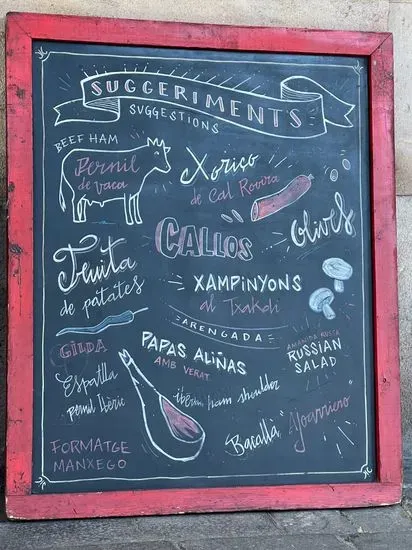 SUGGERIMENTS
SUGGESTIONS
BEEF HAM
Pernil
de vaca
Xoriço
de Cal Rovira
CALLOS
Olives
Truita
de patates
XAMPINYONS
al Txakoli
ARENGADA
GILDA
PAPAS ALIÑAS
AMB VERAT
AMANIDA RUSSA
RUSSIAN
SALAD
Espatlla
pernil Ibèric
iberian ham shoulder
FORMATGE
MANXEGO
Bacallà
Ajoarriero